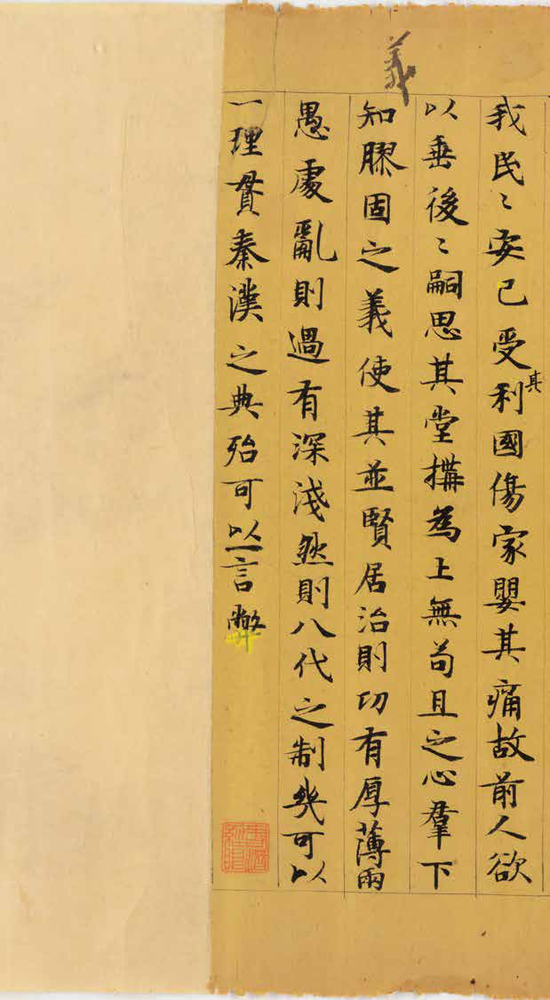 我民〻安己受其利國傷家嬰其痛故前人欲
以垂後〻嗣思其堂構為上無苟且之心羣下
義
知膠固之義使其並賢居治則功有厚薄兩
愚處亂則過有深淺然則八代之制幾可以
一理貫秦漢之典殆可以一言弊